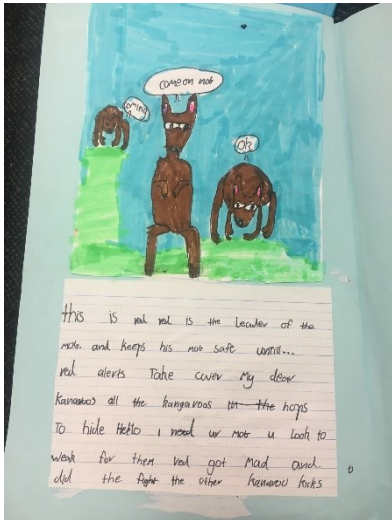 come on mob
coming
Ok
this is red red is the Leader of the
mob. and keeps his mob safe untill...
red alerts Take cover My dear
Kanaroos all the kangaroos in the hops
To hide Hello I need ur mob u Look to
weak for them red got Mad and
did the fight the other kanaroo kicks